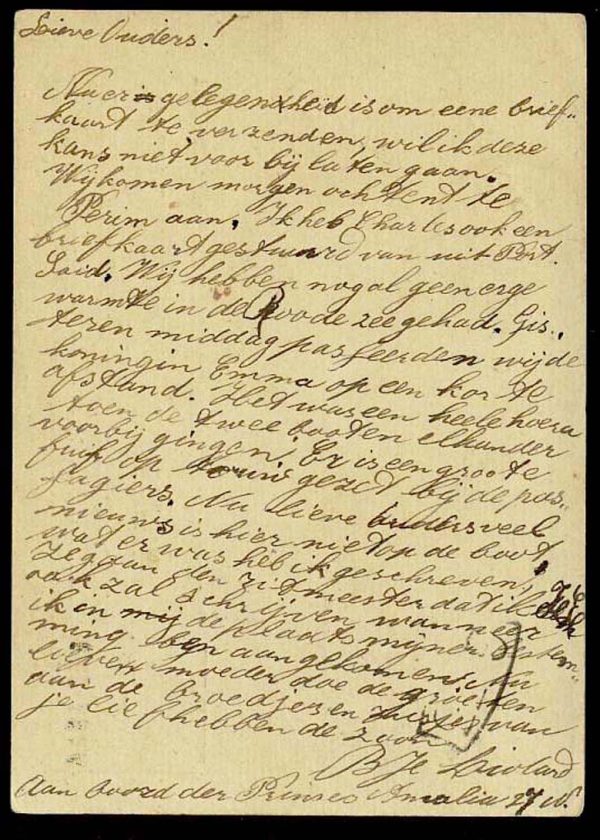 Lieve Ouders!
Nu er is gelegenheid is om eene brief-
kaart te verzenden, wil ik deze
kans niet voor bij laten gaan.
Wij komen morgen ochtent te
Perim aan. Ik heb Charles ook een
briefkaart gestuurd van uit Port.
Said. Wij hebben nogal geen erge
warmte in de Roode zee gehad. Gis-
teren middag passeerden wij de
koningin Emma op een korte
afstand. Het was een heele hoera
toen de twee booten elkander
voorbij gingen. Er is een groote
fuif op touw gezet bij de pas-
sagiers. Nu lieve ouders veel
nieuws is hier niet op de boot
wat er was heb ik geschreven,
Zeg aan den zetmeester dat ik
ook zal schrijven wanneer
ik in de plaats mijner bestem-
ming ben aangekomen. Nu
lieve moeder doe de groeten
aan de broedjes en zusjes van
je lief hebben de zoon
B Je
Aan boord der Prinses Amalia 27